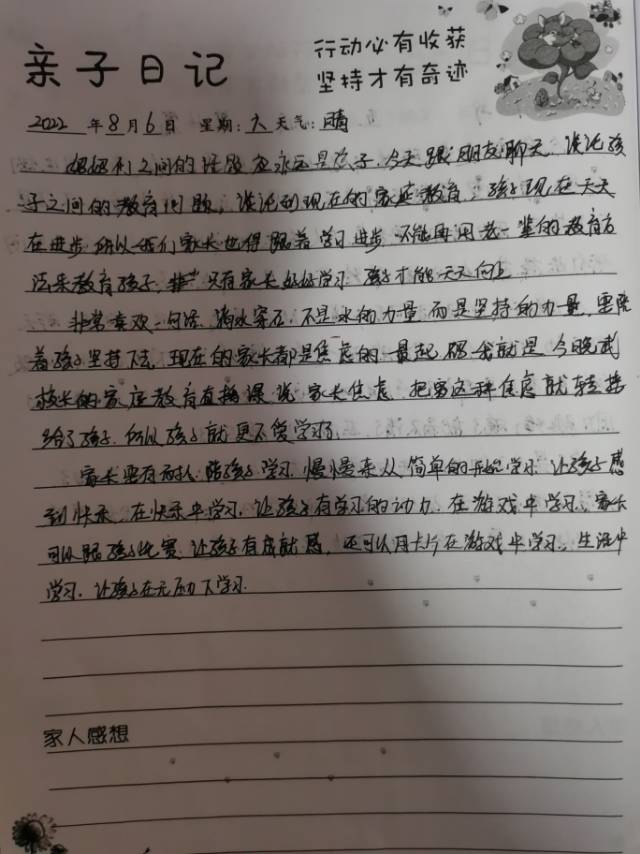 亲子日记
行动必有收获
坚持才有奇迹
2022 年 8 月 6 日 星期：六 天气：晴
妈妈们之间的话题永远是孩子，今天跟朋友聊天，谈论孩
子之间的教育问题，谈论到现在的家庭教育，孩子现在天天
在进步所以我们家长也得跟着学习进步不能再用老一辈的教育方
法来教育孩子，只有家长好好学习 孩子才能天天向上
非常喜欢一句话，滴水穿石，不是水的力量，而是坚持的力量，要陪
着孩子坚持下去，现在的家长都是焦虑的一最起码我就是，今晚武
校长的家庭教育直播课说家长焦虑，把家这种焦虑就转接
给了孩子，所以孩子就更不爱学习了
家长要有耐心陪孩子学习，慢慢来从简单的开始学习 让孩子感
到快乐，在快乐中学习，让孩子有学习的动力，在游戏中学习，家长
可以跟孩子比赛，让孩子有成就感，还可以用卡片在游戏中学习，生活中
学习，让孩子在无压力下学习
家人感想